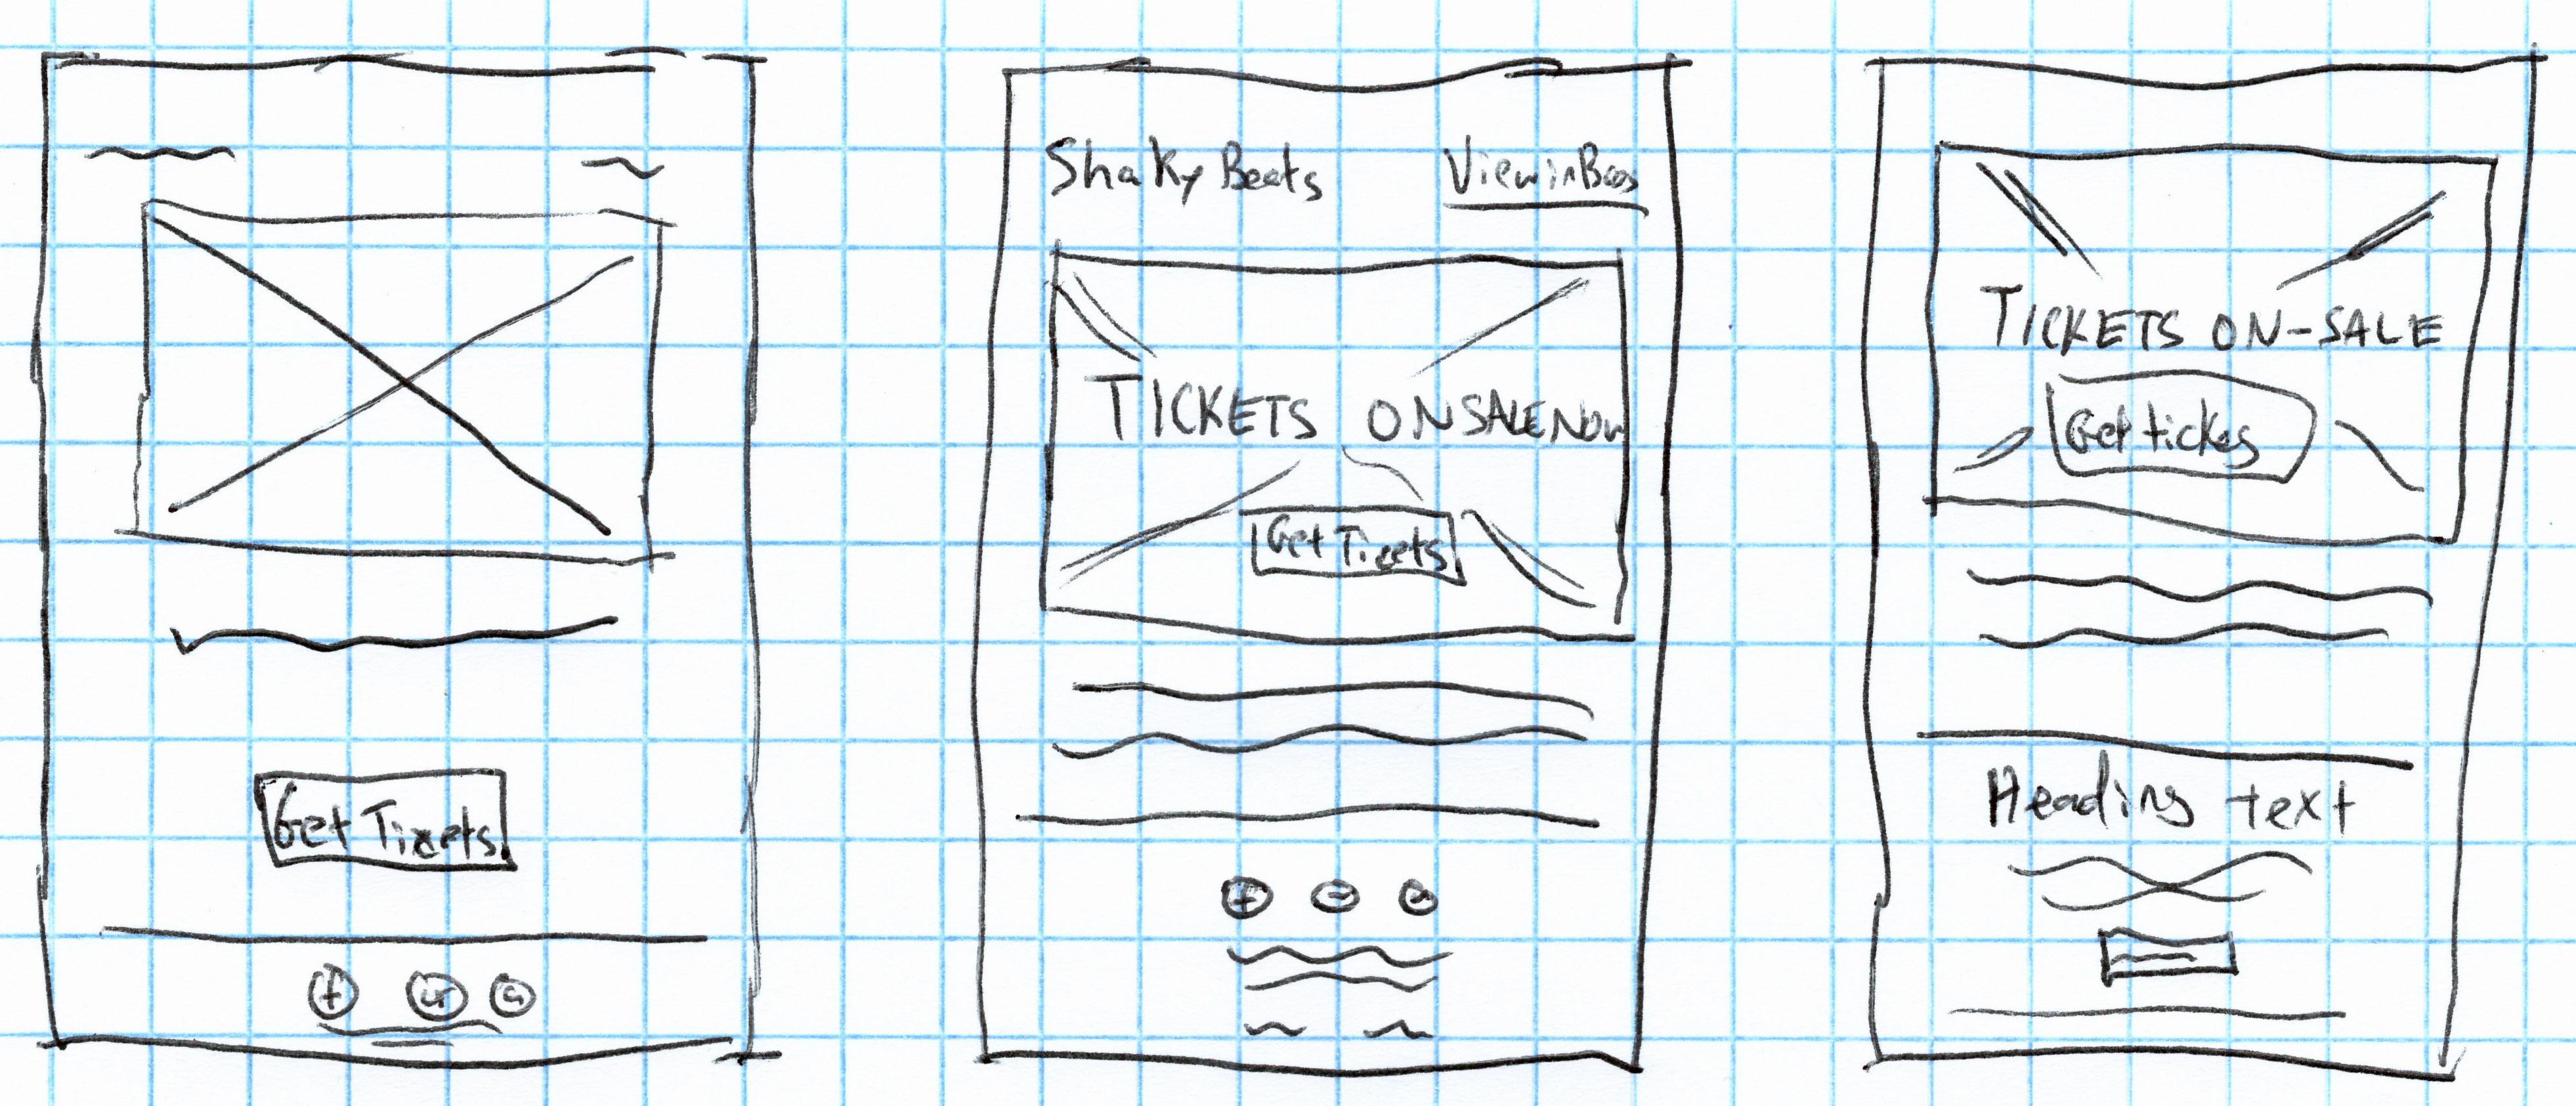 Get Tixets
Shaky Beats
TICKETS ON SALE NOW
Get Tixets
TICKETS ON-SALE
Get tickes
Heading text